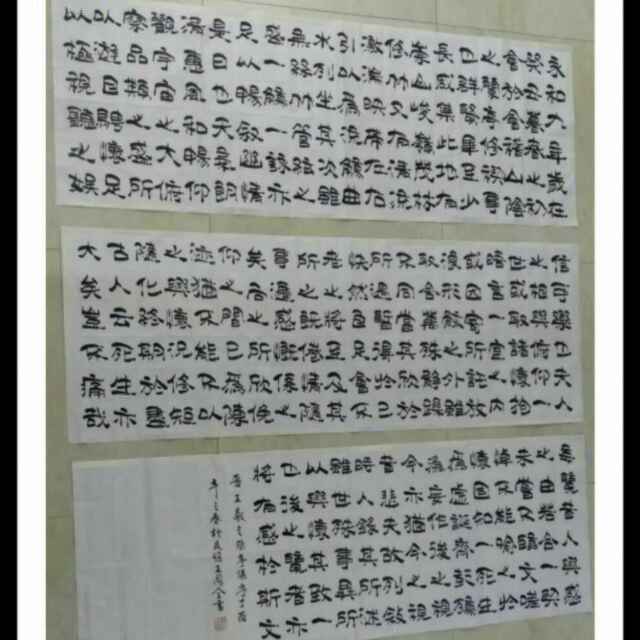 永和九年歲在
癸丑暮春之初
會於會稽山陰
之蘭亭修禊事
也群賢畢至少
長咸集此地有
崇山峻嶺茂林
修竹又有清流
激湍映帶左右
引以為流觴曲
水列坐其次雖
無絲竹管絃之
盛一觴一詠亦
足以暢敘幽情
是日也天朗氣
清惠風和暢仰
觀宇宙之大俯
察品類之盛所
以遊目騁懷足
以極視聽之娛
信可樂也夫人
之相與俯仰一
世或取諸懷抱
悟言一室之內
或因寄所託放
浪形骸之外雖
取舍萬殊靜躁
不同當其欣於
所遇暫得於己
快然自足曾不
老之將至及其
所之既倦情隨
事遷感慨係之
矣向之所欣俛
仰之間已為陳
迹猶不能不以
之興懷況修短
隨化終期於盡
古人云死生亦
大矣豈不痛哉
每覽昔人興感
之由若合一契
未嘗不臨文嗟
悼不能喻之於
懷固知一死生
為虛誕齊彭殤
為妄作後之視
今亦猶今之視
昔悲夫故列敘
時人錄其所述
雖世殊事異所
以興懷其致一
也後之覽者亦
將有感於斯文
晉王羲之蘭亭集序